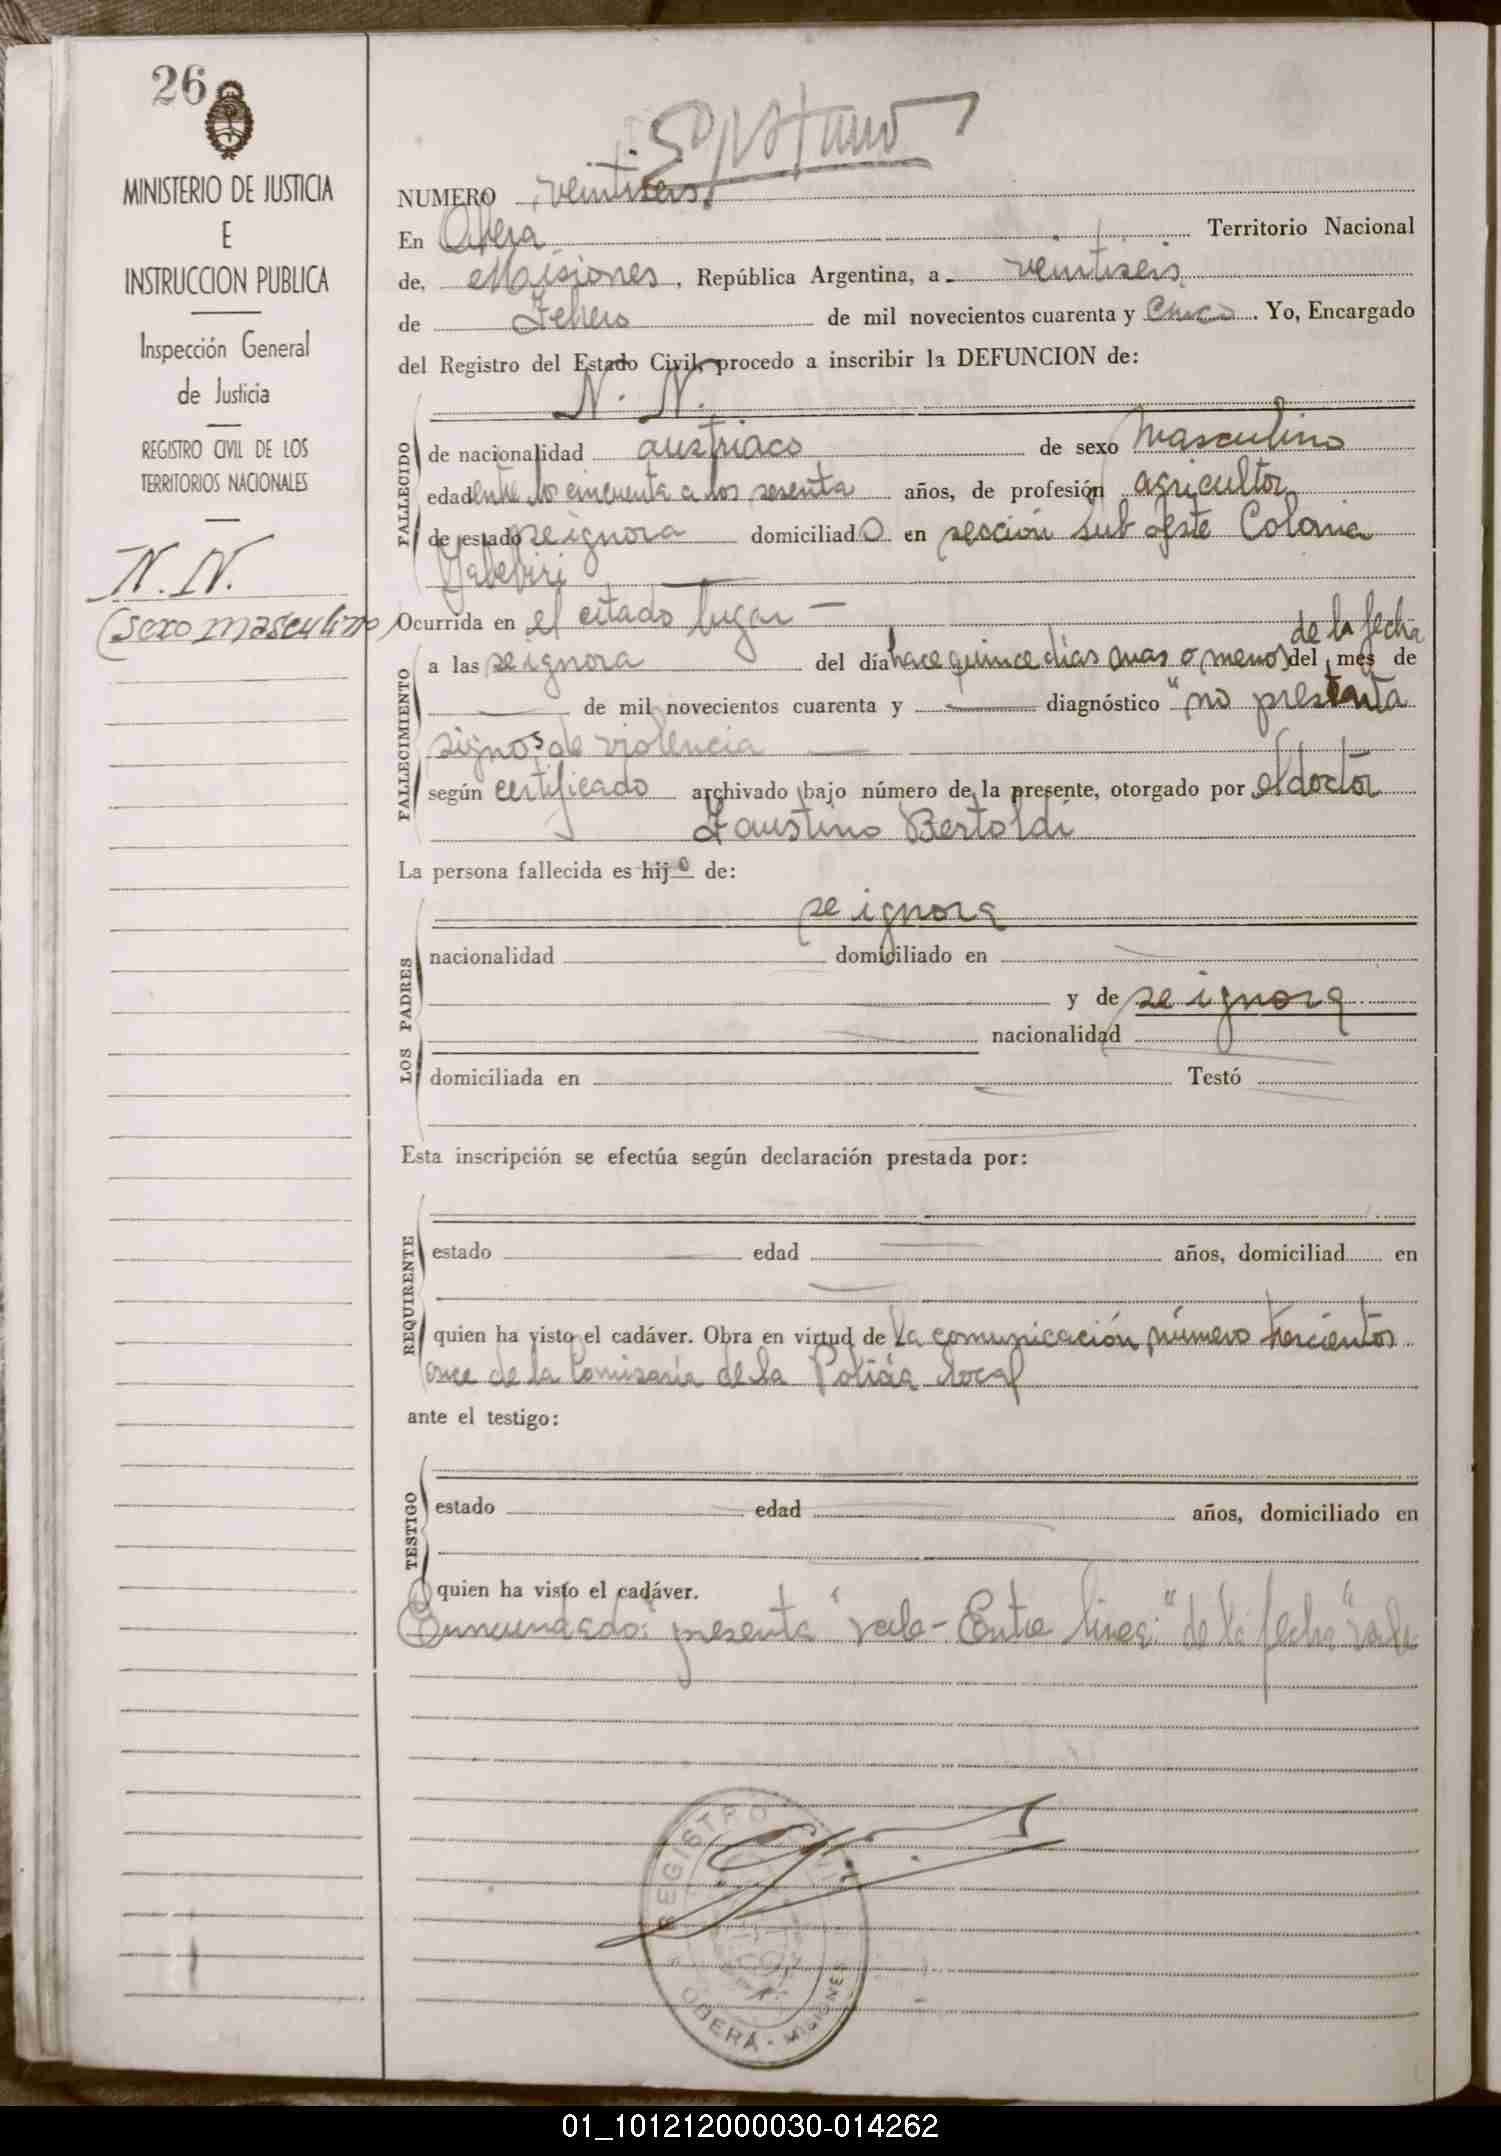 26
MINISTERIO DE JUSTICIA
E
INSTRUCCION PUBLICA
Inspección General
de Justicia
REGISTRO CIVIL DE LOS
TERRITORIOS NACIONALES
N. N.
(sexo masculino)
NUMERO veintiseis
En Obera Territorio Nacional
de, Misiones, República Argentina, a veintiseis
de Febrero de mil novecientos cuarenta y cinco. Yo, Encargado
del Registro del Estado Civil, procedo a inscribir la DEFUNCION de:
N. N.
FALLECIDO
de nacionalidad austriaco de sexo masculino
edad entre los cincuenta a los sesenta años, de profesión agricultor
de estado se ignora domiciliado en sección sud oeste Colonia
Yabebiri
Ocurrida en el citado lugar —
de la fecha
FALLECIMIENTO
a las se ignora del día hace quince días mas o menos del mes de
— de mil novecientos cuarenta y — diagnóstico "no presenta
signos de violencia —
según certificado archivado bajo número de la presente, otorgado por el doctor
Faustino Bertoldi
La persona fallecida es hijo de:
LOS PADRES
se ignora
nacionalidad domiciliado en
y de se ignora
nacionalidad
domiciliada en Testó
Esta inscripción se efectúa según declaración prestada por:
REQUIRENTE
estado edad años, domiciliad en
quien ha visto el cadáver. Obra en virtud de la comunicación número trescientos
once de la Comisaría de la Policía local
ante el testigo:
TESTIGO
estado edad años, domiciliado en
quien ha visto el cadáver.
Enmendado: presenta" vale - Entre linea: "de la fecha" vale
REGISTRO CIVIL
OBERÁ - MISIONES
01_101212000030-014262